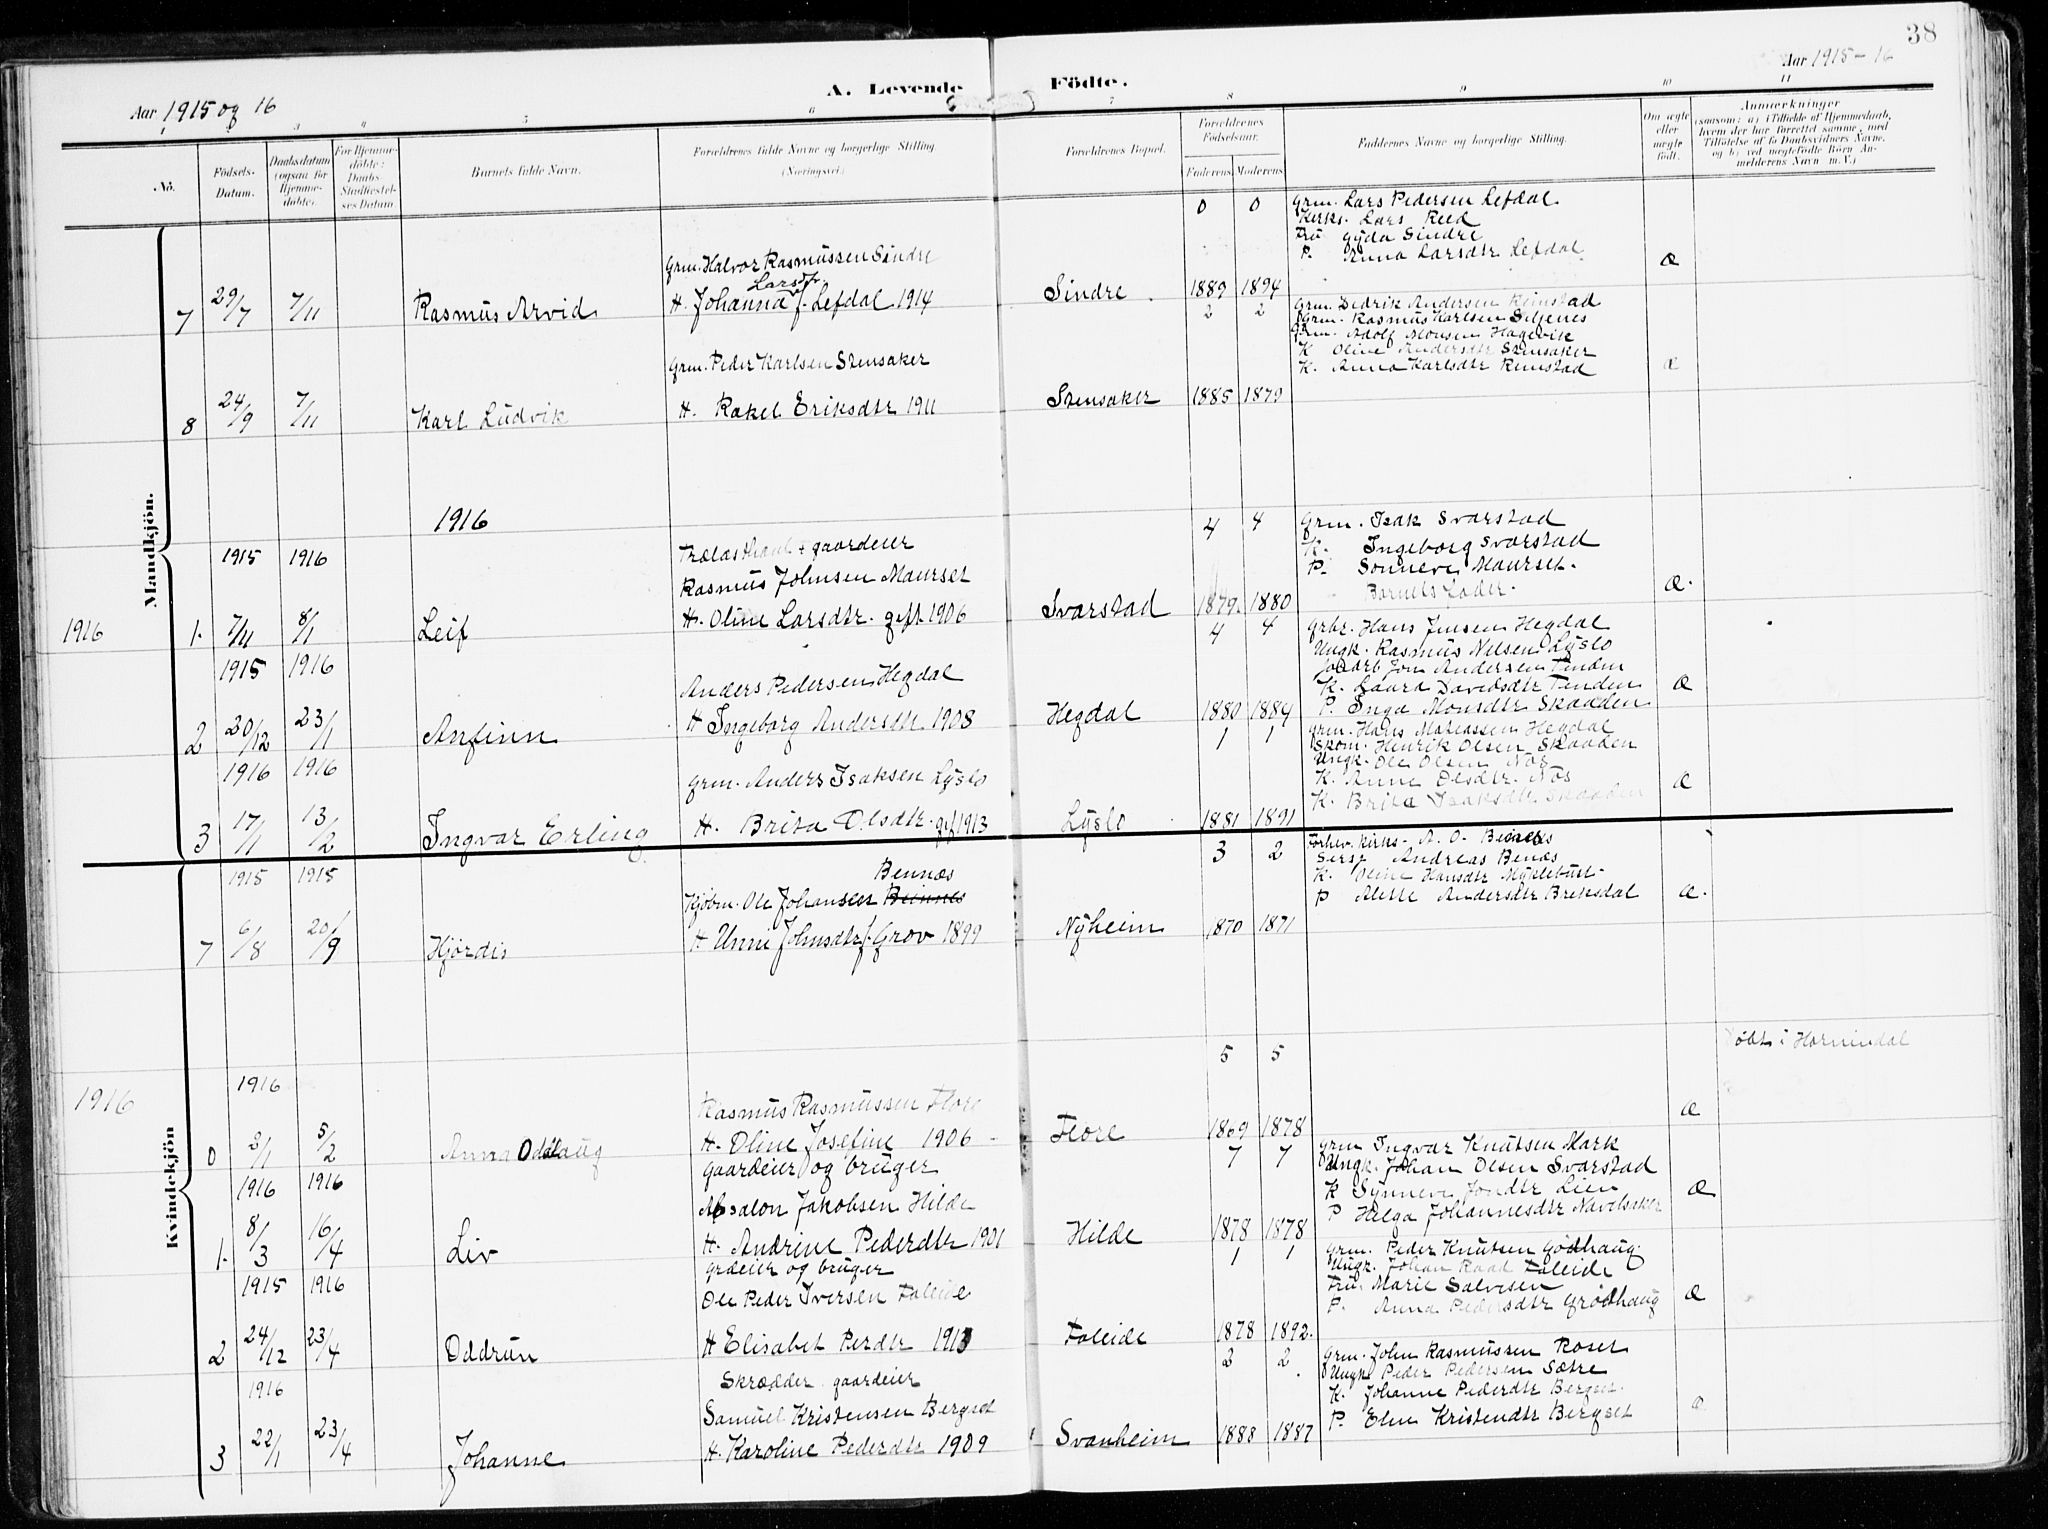 38
Aar 1915 og 16
A. Levende Födte.
Aar 1915-16
3 4 5 6 7 8 9 10 11
No.
Födsels-Datum.
Daabsdatum (ogsaa for Hjemme-döbte).
For Hjemme-döbte: Daabs-Stadfæstel-ses Datum.
Barnets fulde Navn.
Forældrenes fulde Navne og borgerlige Stilling. (Næringsvei.)
Forældrenes Bopæl.
Forældrenes Födselsaar.
Faderens Moderens
Faddernes Navne og borgerlige Stilling.
Om ægte eller uægte födt.
Anmærkninger
(saasom: a) i Tilfælde af Hjemmedaab, hvem der har forrettet samme, med Tilföielse af to Daabsvidners Navne, og b) ved uægtefödte Börn An-melderens Navn m. V.)
Mandkjön.
0 0
Grm. Lars Pedersen Lefdal
Kirks. Lars Reed
Fru Gyda Sindre
P. Anna Larsdtr Lefdal
Æ
Grm. Halvor Rasmussen Sindre
Larsd.
7 29/7 7/11 Rasmus Arvid H. Johanna f. Lefdal 1914 Sindre 1889 1894
2 2
Grm. Didrik Andersen Reinstad
Grm. Rasmus Karlsen Siljenes
Grm. Adolf Monsen Hagevik
K Oline Andersdtr Stensaker
K. Anna Karlsdtr Reinstad
Æ
Grm. Peder Karlsen Stensaker
8 24/9 7/11 Karl Ludvik H. Rakel Eriksdtr 1911 Stensaker 1885 1879
1916
4 4
Grm. Isak Svarstad
K. Ingeborg Svarstad
P. Sønneve Maurset.
Barnets Fader.
Æ.
1915 1916
Trælasthandl + gaardeier
Rasmus Johnsen Maurset
1916 1. 7/11 8/1 Leif H. Oline Larsdtr. gift 1906 Svarstad 1879. 1880
4 4
Grbr. Hans Jensen Hegdal
Ungk. Rasmus Nilsen Lyslo
Jon Andersen Tenden
K. Laura Davidsdtr Tenden
P. Inga Monsdtr Skaaden
Æ
1915 1916
Anders Pedersen Hegdal
2 20/12 23/1 Anfinn H Ingeborg Andersdtr 1908 Hegdal 1880 1884
1 1
Grm. Hans Matiassen Hegdal
Skom. Henrik Olsen Skaaden
Ungk. Ole Olsen Nos
K. Anne Olsdtr. Nos
K. Brita Isaksdtr Skaaden
Æ
1916 1916
Grm. Anders Isaksen Lyslo
3 17/1 13/2 Ingvar Erling H. Brita Olsdtr. gift 1913 Lyslo 1881 1891
Kvindekjön
3 2
Forhv. Kirks. A. O. Bennes
Sersj Andreas Benæs
K. Oline Hansdtr Myklebust
P Alette Andersdtr Breksdal
Æ.
1915 1915
Bennæs
Kjøbm. Ole Johansen Beinnes
7 6/8 20/9 Hjørdis H Unni Johnsdtr f. Grov 1899 Nyheim 1870 1871
5 5
Døbt i Hornindal
1916
1916
Rasmus Rasmussen Flore
Æ
0 3/1 5/2 Anna Oddlaug H. Oline Josefine 1906 Flore 1869 1878
7 7
Grm Ingvar Knutsen Mark
Ungk. Johan Olsen Svarstad
K Synneve Jondtr Lien
P Helga Johannesdtr Navelsaker
Æ
Gaardeier og bruger
1916 1916
Absalon Jakobsen Hilde
1. 8/3 16/4 Liv H. Andrine Pederdtr 1901 Hilde 1878 1878
1 1
Grm. Peder Knutsen Godhaug
Ungk. Johan Raad Faleide
Fru. Marie Salvesen
P. Anna Pedersdtr Grødhaug
Æ
Grdeier og bruger
1915 1916
Ole Peder Iversen Faleide
2 24/12 23/4 Oddrun H Elisabet Perdtr 1913 Faleide 1878 1892.
2 2
Grm. John Rasmussen Roset
Ungk Peder Pedersen Sætre
K. Johanne Pederdtr Bergset
P. Elen Kristendtr Bergset
Æ
Skrædder gaardeier
1916
Samuel Kristensen Bergset
3 22/1 23/4 Johanne H. Karoline Pederdtr 1909 Svanheim 1888 1887